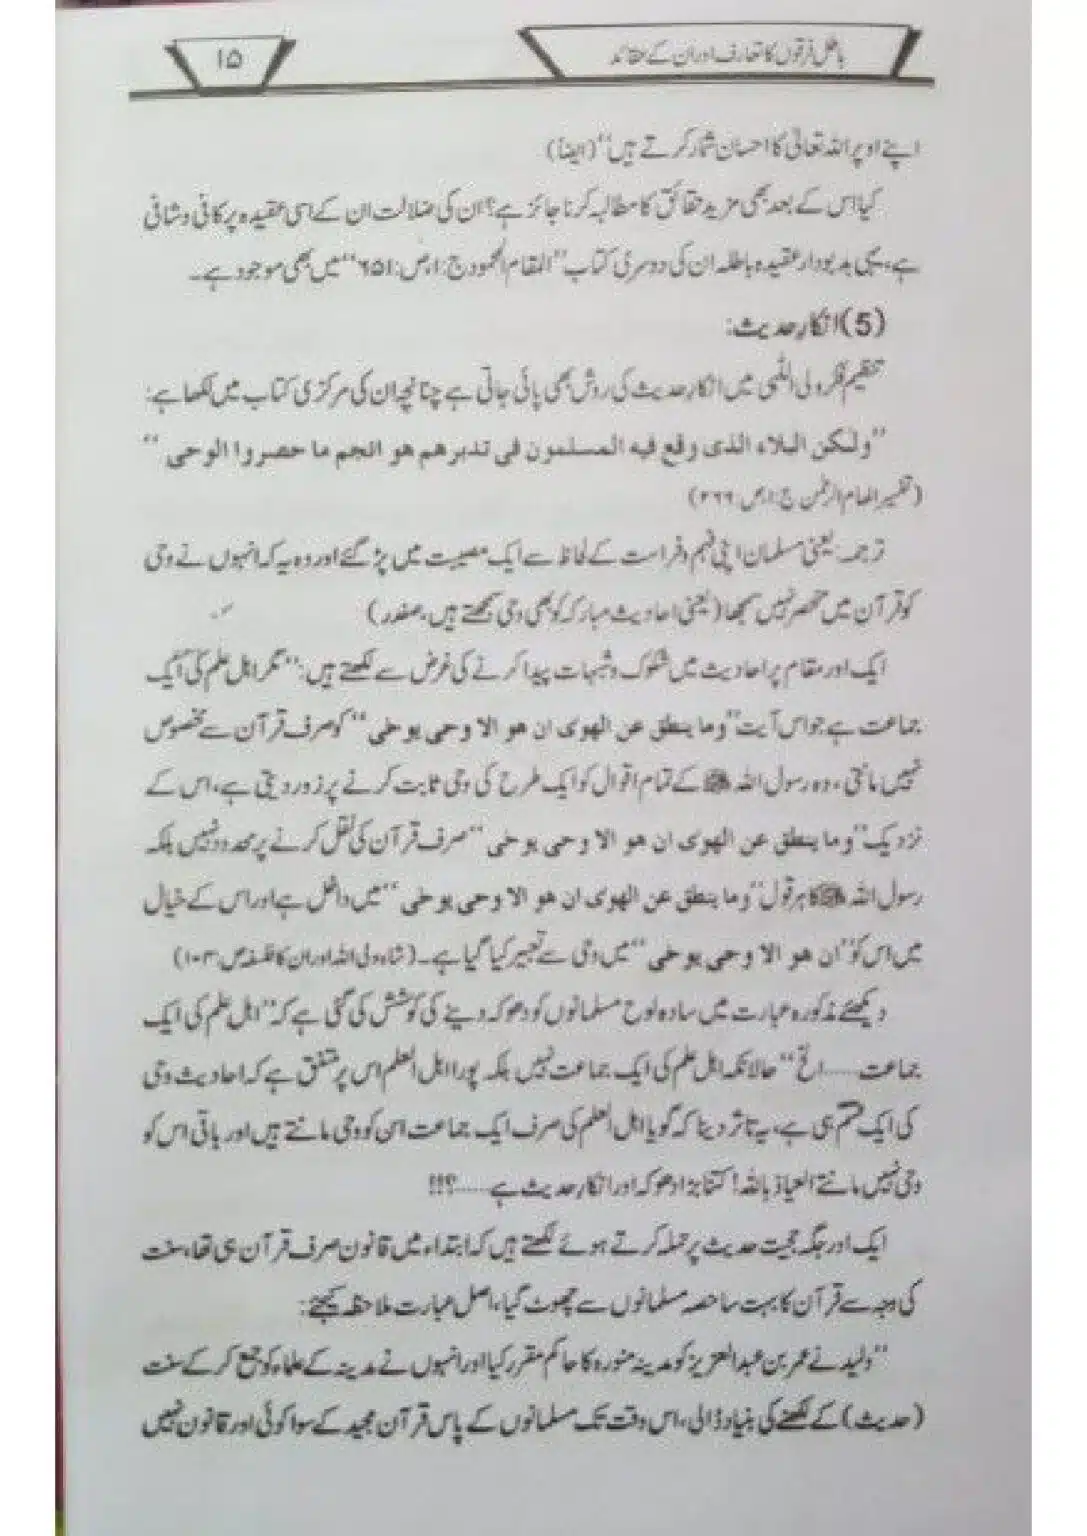 باطل فرقوں کا تعارف اور ان کے عقائد
۱۵
اپنے اوپر اللہ تعالیٰ کا احسان شمار کرتے ہیں‘‘ (ایضاً)
کیا اس کے بعد بھی مزید حقائق کا مطالبہ کرنا جائز ہے؟ ان کی ضلالت ان کے اسی عقیدہ پر کافی وشافی
ہے، یہی بدبودار عقیدہ باطلہ ان کی دوسری کتاب ’’المقام المحمود ج:۱،ص:۶۵۱‘‘ میں بھی موجود ہے۔
(5) انکار حدیث:
تنظیم فکر ولی اللٰہی میں انکار حدیث کی روش بھی پائی جاتی ہے چنانچہ ان کی مرکزی کتاب میں لکھا ہے:
’’ولکن البلاء الذی وقع فیه المسلمون فی تدبرهم هو انجم ما حصروا الوحی‘‘
(تفسیر الہام الرحمٰن ج:۱،ص:۲۶۶)
ترجمہ: یعنی مسلمان اپنی فہم وفراست کے لحاظ سے ایک مصیبت میں پڑ گئے اور وہ یہ کہ انہوں نے وحی
کو قرآن میں منحصر نہیں سمجھا (یعنی احادیث مبارکہ کو بھی وحی سمجھتے ہیں، صفدر)
ایک اور مقام پر احادیث میں شکوک وشبہات پیدا کرنے کی غرض سے لکھتے ہیں: ’’مگر اہل علم کی ایک
جماعت ہے جو اس آیت ’’وما ینطق عن الهوی ان هو الا وحی یوحٰی‘‘ کو صرف قرآن سے مخصوص
نہیں مانتی، وہ رسول اللہ ﷺ کے تمام اقوال کو ایک طرح کی وحی ثابت کرنے پر زور دیتی ہے، اس کے
نزدیک ’’وما ینطق عن الهوی ان هو الا وحی یوحٰی‘‘ صرف قرآن کی نقل کرنے پر محدود نہیں بلکہ
رسول اللہ ﷺ کا ہر قول ’’وما ینطق عن الهوی ان هو الا وحی یوحٰی‘‘ میں داخل ہے اور اس کے خیال
میں اس کو ’’ان هو الا وحی یوحٰی‘‘ میں وحی سے تعبیر کیا گیا ہے۔ (شاہ ولی اللہ اور ان کا فلسفہ ص:۱۰۳)
دیکھئے مذکورہ عبارت میں سادہ لوح مسلمانوں کو دھوکہ دینے کی کوشش کی گئی ہے کہ ’’اہل علم کی ایک
جماعت.....الخ‘‘ حالانکہ اہل علم کی ایک جماعت نہیں بلکہ پورا اہل العلم اس پر متفق ہے کہ احادیث وحی
کی ایک قسم ہی ہے، یہ تاثر دینا کہ گویا اہل العلم کی صرف ایک جماعت اس کو وحی مانتے ہیں اور باقی اس کو
وحی نہیں مانتے العیاذ باللہ! کتنا بڑا دھوکہ اور انکار حدیث ہے.....؟!!!
ایک اور جگہ حجیت حدیث پر حملہ کرتے ہوئے لکھتے ہیں کہ ابتداء میں قانون صرف قرآن ہی تھا، سنت
کی وجہ سے قرآن کا بہت سا حصہ مسلمانوں سے چھوٹ گیا، اصل عبارت ملاحظہ کیجئے:
’’ولید نے عمر بن عبدالعزیز کو مدینہ منورہ کا حاکم مقرر کیا اور انہوں نے مدینہ کے علماء کو جمع کر کے سنت
(حدیث) کے لکھنے کی بنیاد ڈالی، اس وقت تک مسلمانوں کے پاس قرآن مجید کے سوا کوئی اور قانون نہیں